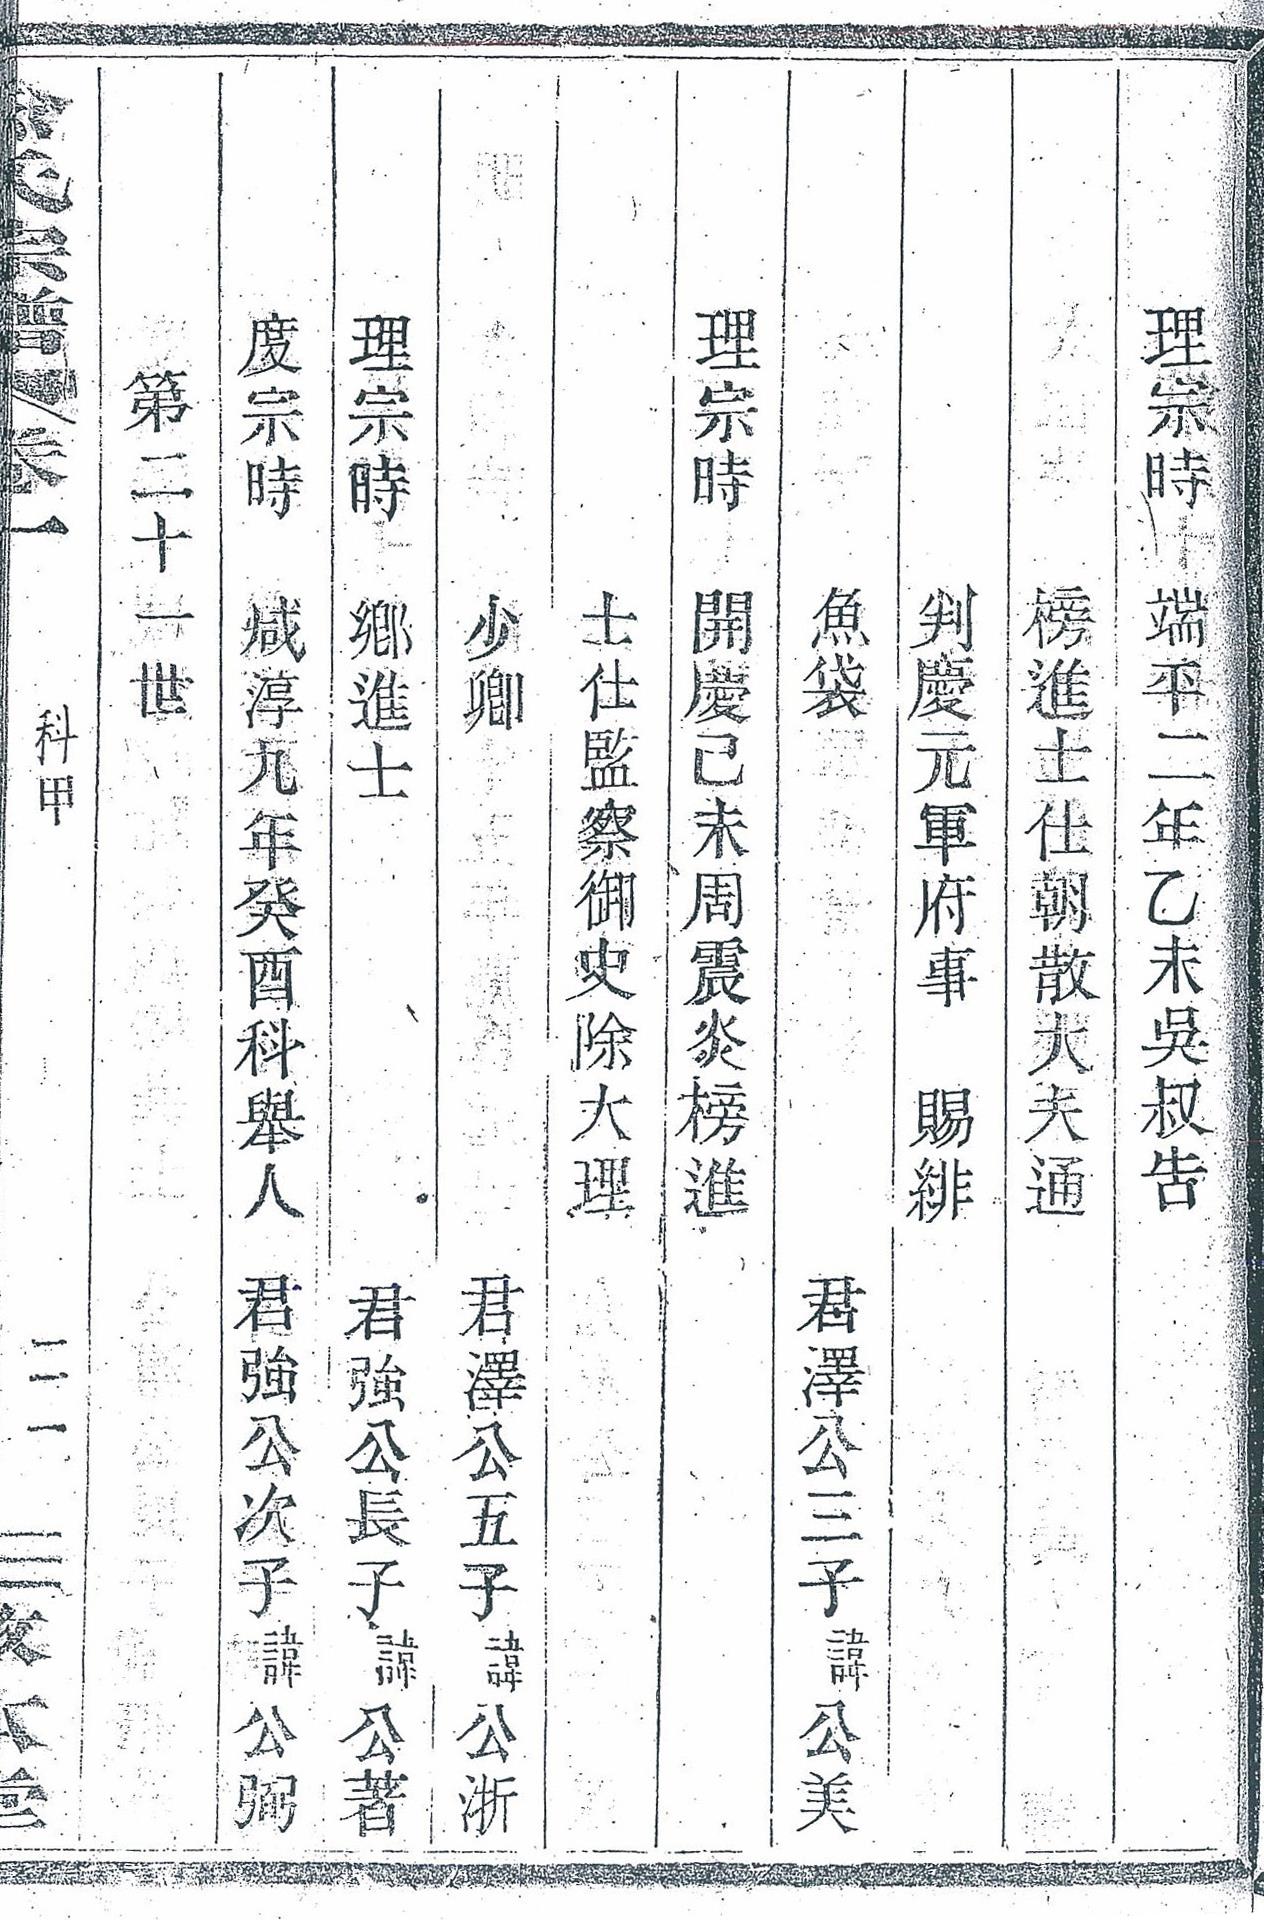 理宗時 端平二年乙未吳叔告
榜進士仕朝散大夫通
判慶元軍府事 賜緋
魚袋 君澤公三子 諱 公美
理宗時 開慶己未周震炎榜進
士仕監察御史除大理
少卿 君澤公五子 諱 公浙
理宗時 鄉進士 君強公長子 諱 公著
度宗時 咸淳九年癸酉科舉人 君強公次子 諱 公弼
第二十一世
氏宗譜 卷一 科甲 三